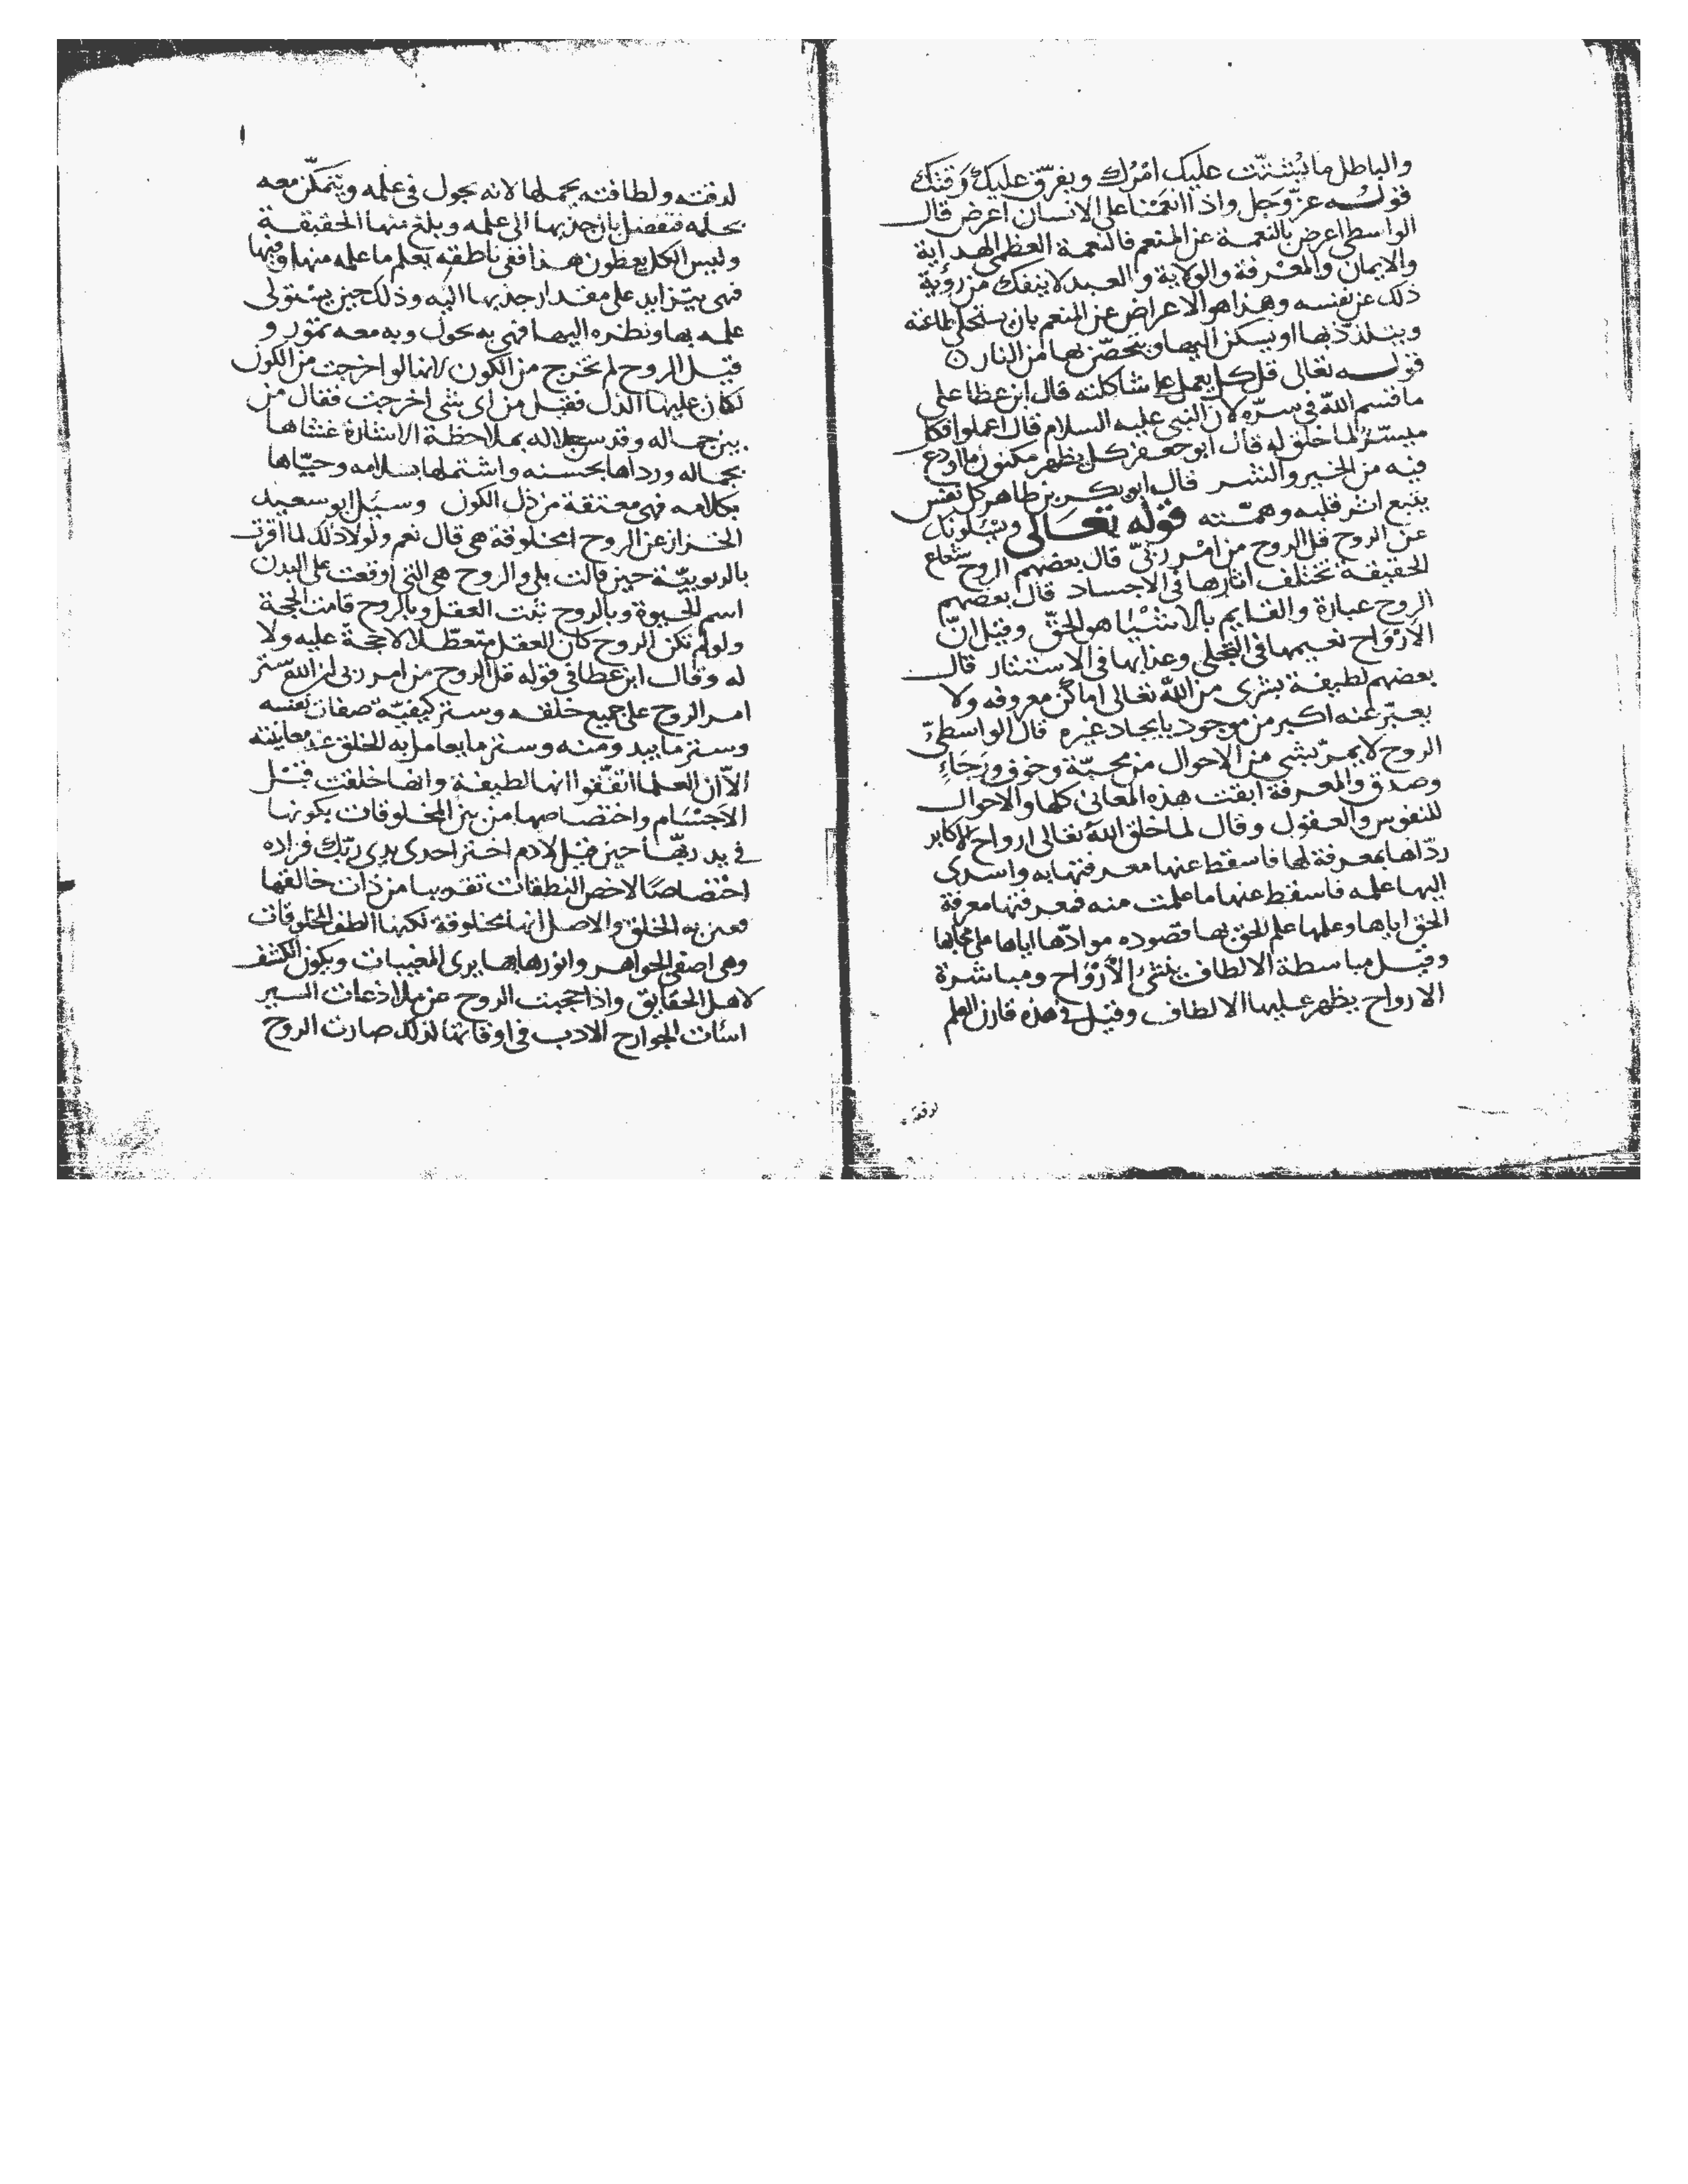 والباطل ما يشتت عليك امرك ويفرق عليك وقتك
قوله عز وجل واذا انعمنا على الانسان اعرض قال
الواسطي اعرض بالنعمة عن المنعم فالنعمة العظمى الهداية
والايمان والمعرفة والولاية والعبد لا ينفك من رؤية
ذلك عن نفسه وهذا هو الاعراض عن المنعم بان يستحلي طاعته
ويتلذذ بها او يسكن اليها ويتحصن بها من النار ه
قوله تعالى قل كل يعمل على شاكلته قال ابن عطا على
ما قسم الله في سره لان النبي عليه السلام قال اعملوا فكل
ميسر لما خلق له قال ابو حعفر كل يظهر مكنون ما اودع
فيه من الخير والشر قال ابو بكر بن طاهر كل نفس
يتبع اثر قلبه وهمته قوله تعالى ويسئلونك
عن الروح قل الروح من امر ربي قال بعضهم الروح شعاع
الحقيقة تختلف اثارها في الاجساد قال بعضهم
الروح عبارة والقايم بالاشيا هو الحق وقيل ان
الارواح نعيمها في التجلي وعذابها في الاستتار قال
بعضهم لطيفة يسرى من الله تعالى اماكن معروفه ولا
يعبر عنه اكبر من موجود بايجاد غيره قال الواسطي
الروح لا يمر بشي من الاحوال من محبة وخوف ورجاء
وصدق والمعرفة ابقت هذه المعاني كلها والاحوال
للنفوس والعقول وقال لما خلق الله تعالى ارواح الاكابر
رداها بمعرفة لها فاسقط عنها معرفتها به واسرى
اليها علمه فاسقط عنها ما علمت منه فمعرفتها معرفة
الحق اياها وعلمها علم الحق بها فصوده موادها اياها على محابها
وقيل مباسطة الالطاف ينشئ الارواح ومباشرة
الارواح يظهر عليها الالطاف وقيل في هذه قارن العلم
لدقته
لدقته ولطافته يحملها لانه يجول في علمه ويتمكن معه
بحلمه فتفضل بان جذبها الى علمه وبلغ منها الحقيقة
وليس الكل يعطون هذا ففي ناطقه بعلم ما علمه منها وفيها
فهي يتزايد على مقدار جذبها اليه وذلك حين يتولى
علمه بها ونظره اليها فهي به تحول وبه معه تمور و
قيل الروح لم تخرج من الكون لانها لو اخرجت من الكون
لكان عليها الذل فقيل من اي شي اخرجت فقال من
بين جماله وقدس جلاله بملاحظة الاشارة غشاها
بجماله ورداها بحسنه واشتملها بسلامه وحياها
بكلامه فهي معتقة من ذل الكون وسئل ابو سعيد
الخراز عن الروح امخلوقة هي قال نعم ولولا ذلك لما اقرت
بالربوبية حين قالت بلى والروح هي التي اوقعت على البدن
اسم الحيوة وبالروح ثبت العقل وبالروح قامت الحجة
ولو لم تكن الروح كان العقل متعطلا لا حجة عليه ولا
له وقال ابن عطا في قوله قل الروح من امر ربي ان الله ستر
امر الروح على جميع خلقه وستر كيفية صفات نفسه
وستر ما يبدو منه وستر ما يعامل به الخلق عند معاينته
الا ان العلما اتفقوا انها لطيفة وانها خلقت قبل
الاجسام واختصاصها من بين المخلوقات بكونها
في يد ربها حين قيل لادم اختر احدى يدي ربك فزاده
اختصاصا لاخص النطقات تقريبا من ذات خالقها
فمن به الخلق والاصل انها مخلوقة لكنها الطف المخلوقات
وهي اصفى الجواهر وانورها بها يرى المغيبات ويكون الكشف
لاهل الحقايق واذا حجبت الروح عن مراعات السير
اسأت الجوارح الادب في اوقاتها لذلك صارت الروح